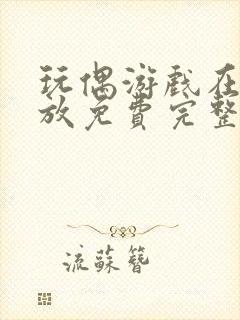 玩偶游戏在
放免费完整
流苏簪